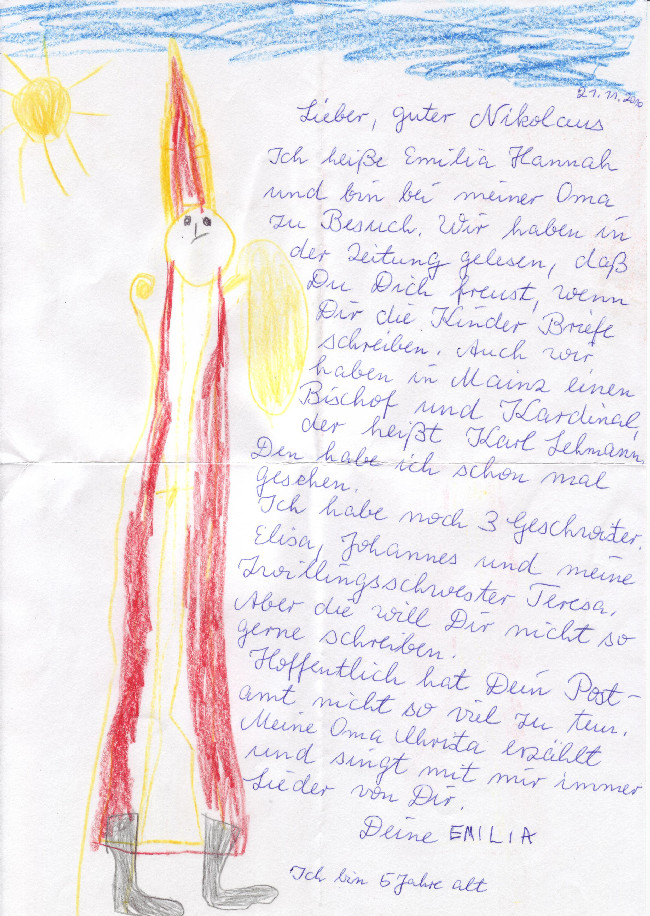 21.11.2010
Lieber, guter Nikolaus
Ich heiße Emilia Hannah
und bin bei meiner Oma
zu Besuch. Wir haben in
der Zeitung gelesen, daß
Du Dich freust, wenn
Dir die Kinder Briefe
schreiben. Auch wir
haben in Mainz einen
Bischof und Kardinal,
der heißt Karl Lehmann.
Den habe ich schon mal
gesehen.
Ich habe noch 3 Geschwister.
Elisa, Johannes und meine
Zwillingsschwester Teresa.
Aber die will Dir nicht so
gerne schreiben.
Hoffentlich hat Dein Post-
amt nicht so viel zu tun.
Meine Oma Christa erzählt
und singt mit mir immer
Lieder von Dir.
Deine EMILIA
Ich bin 5 Jahre alt